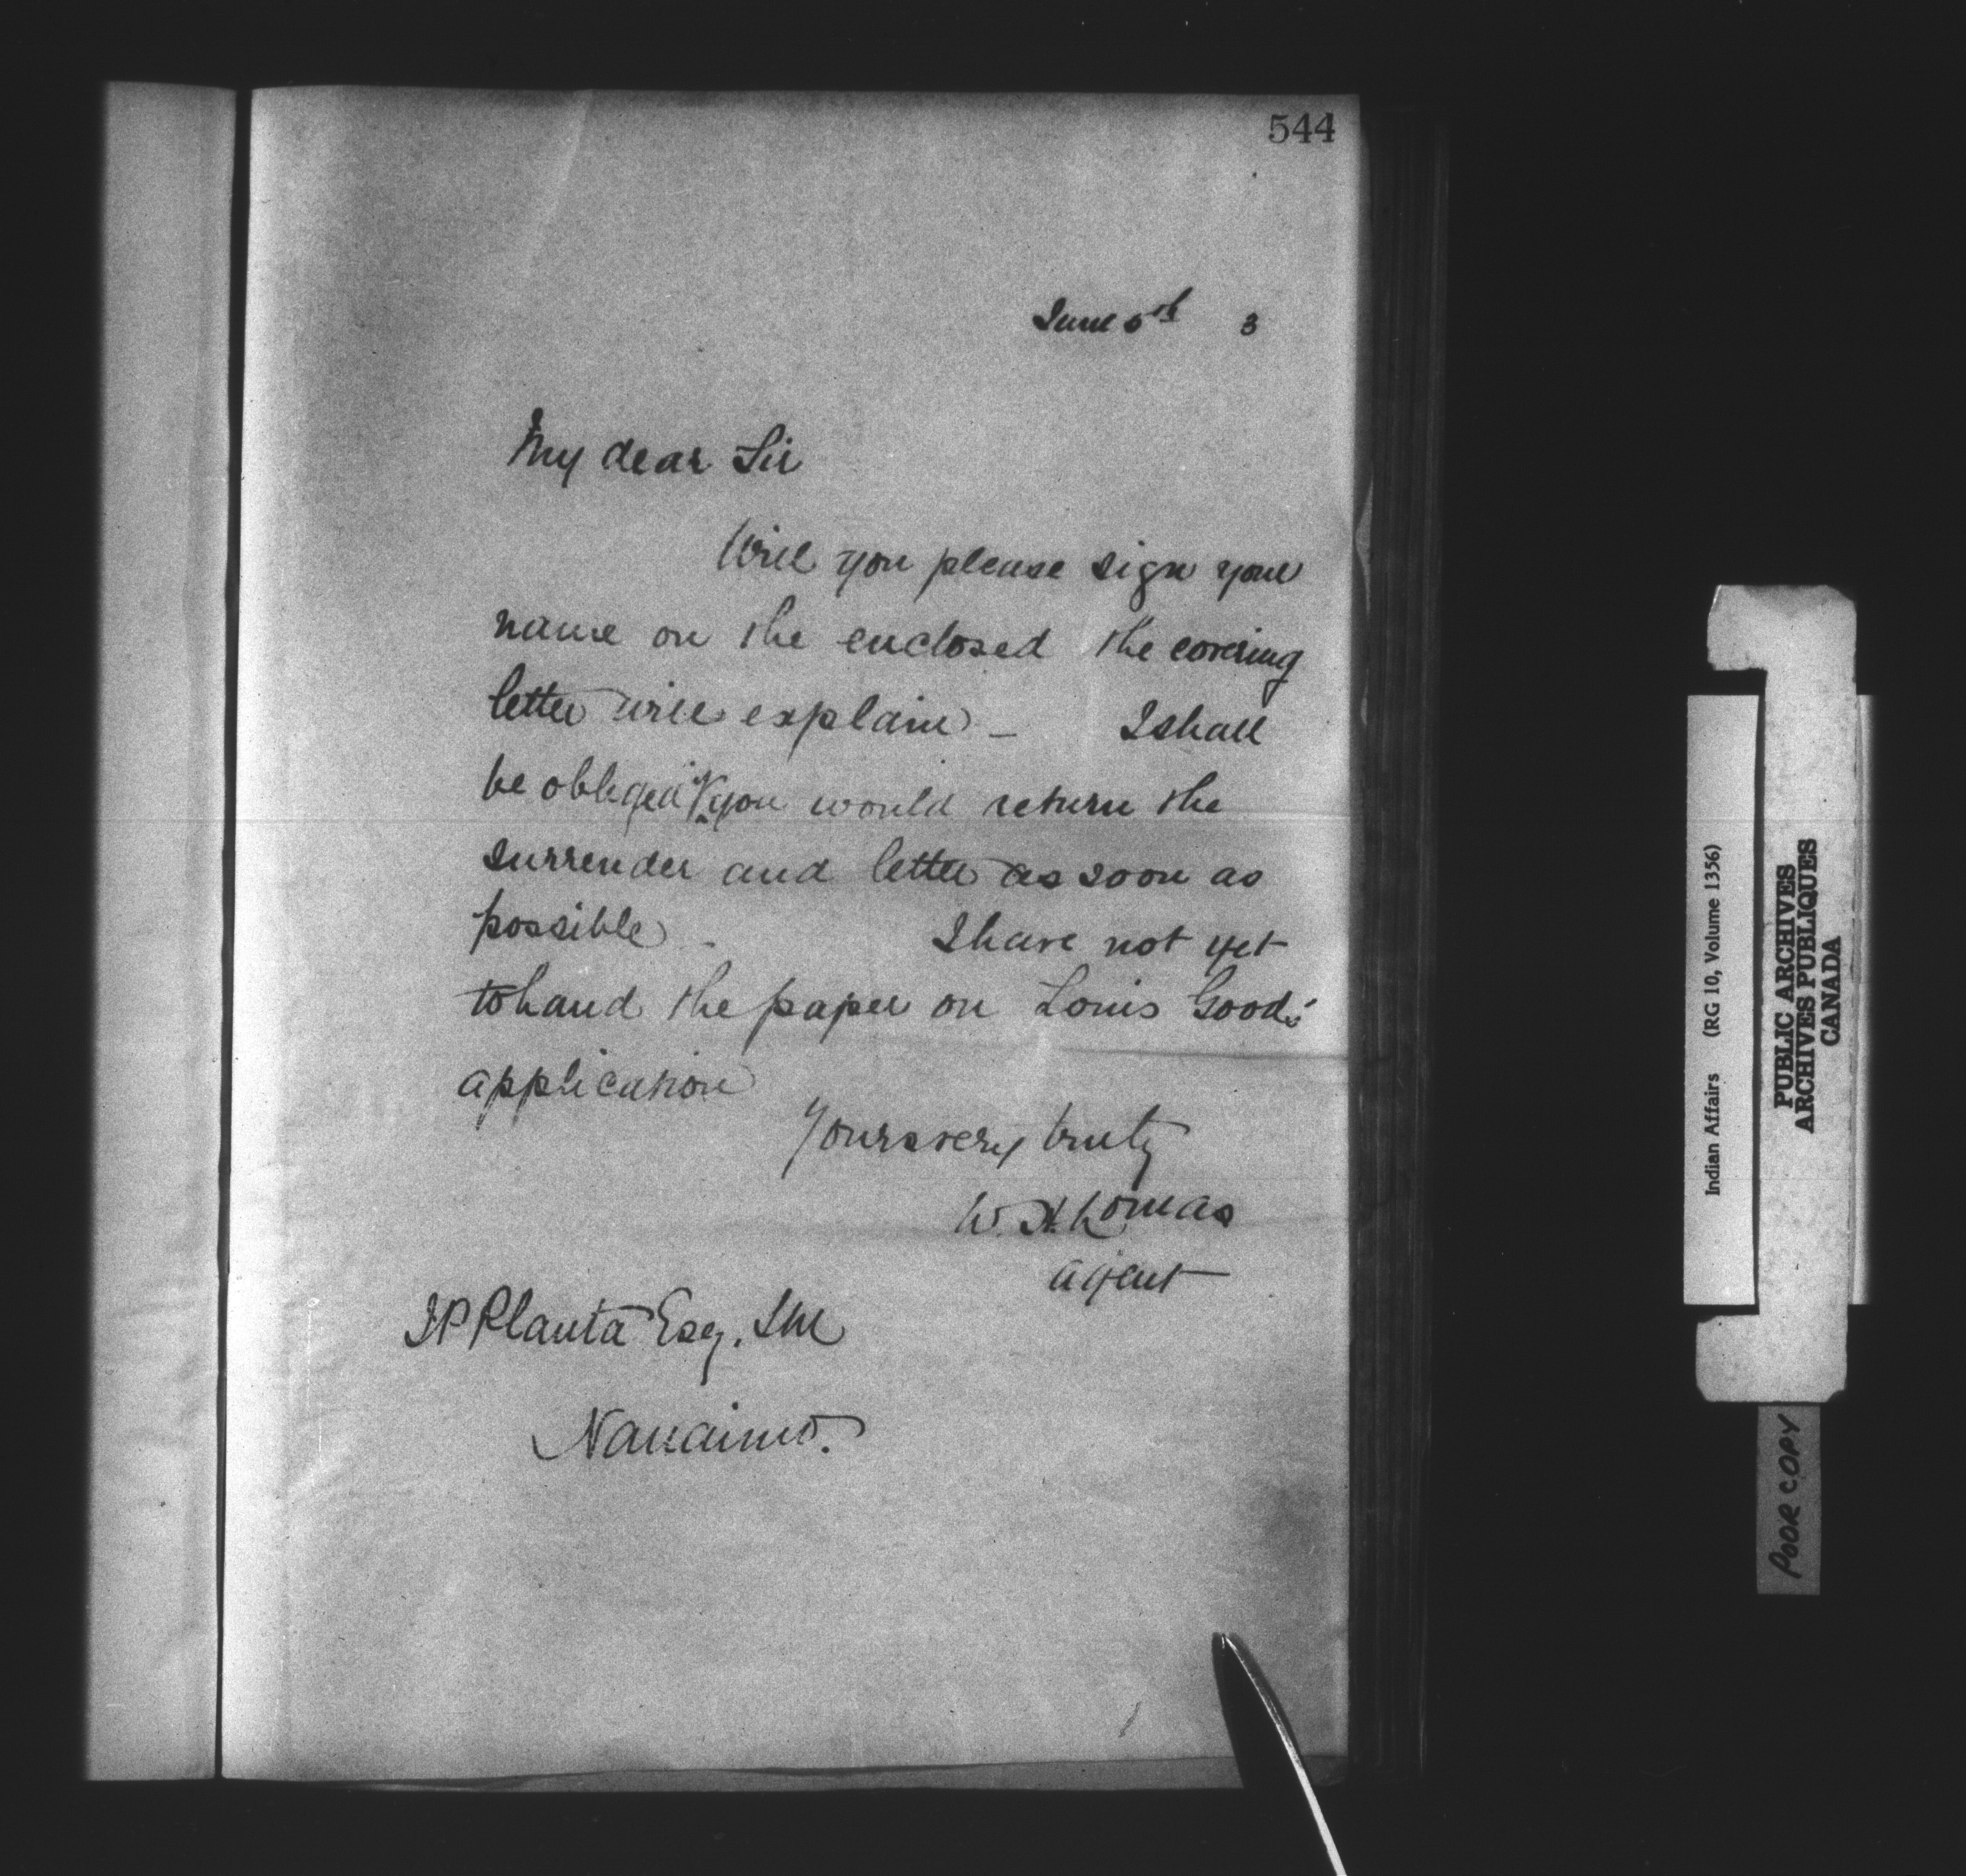 544
June 5th 3
My dear Sir
Will you please sign your
name on the enclosed the covering
letter will explain – I shall
be obliged if you would return the
surrender and letter as soon as
possible. I have not yet
to hand the paper on Louis Good's
application
Yours very truly
W. H. Lomas
Agent
J P Planta Esq. S M
Nanaimo.
Indian Affairs (RG 10, Volume 1356)
PUBLIC ARCHIVES
ARCHIVES PUBLIQUES
CANADA
POOR COPY